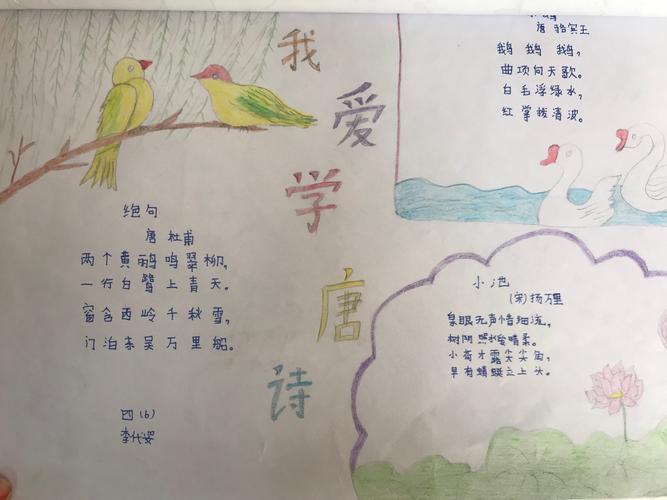 我爱学唐诗
绝句
唐 杜甫
两个黄鹂鸣翠柳,
一行白鹭上青天。
窗含西岭千秋雪,
门泊东吴万里船。
四(6)
李代姿
唐 骆宾王
鹅 鹅 鹅,
曲项向天歌。
白毛浮绿水,
红掌拨清波。
小池
(宋)杨万里
泉眼无声惜细流,
树阴照水爱晴柔。
小荷才露尖尖角,
早有蜻蜓立上头。